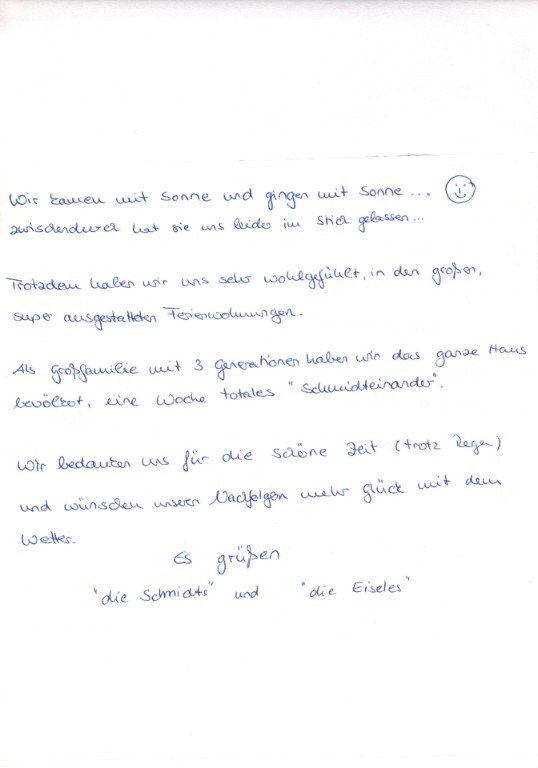 Wir kamen mit Sonne und gingen mit Sonne...
zwischendurch hat sie uns leider im Stich gelassen...
Trotzdem haben wir uns sehr wohlgefühlt, in den großen,
super ausgestatteten Ferienwohnungen.
Als Großfamilie mit 3 Generationen haben wir das ganze Haus
bevölkert, eine Woche totales "Schmidteinander".
Wir bedanken uns für die schöne Zeit (trotz Regen)
und wünschen unsern Nachfolgern mehr Glück mit dem
Wetter.
Es grüßen
"die Schmidts" und "die Eiseles"